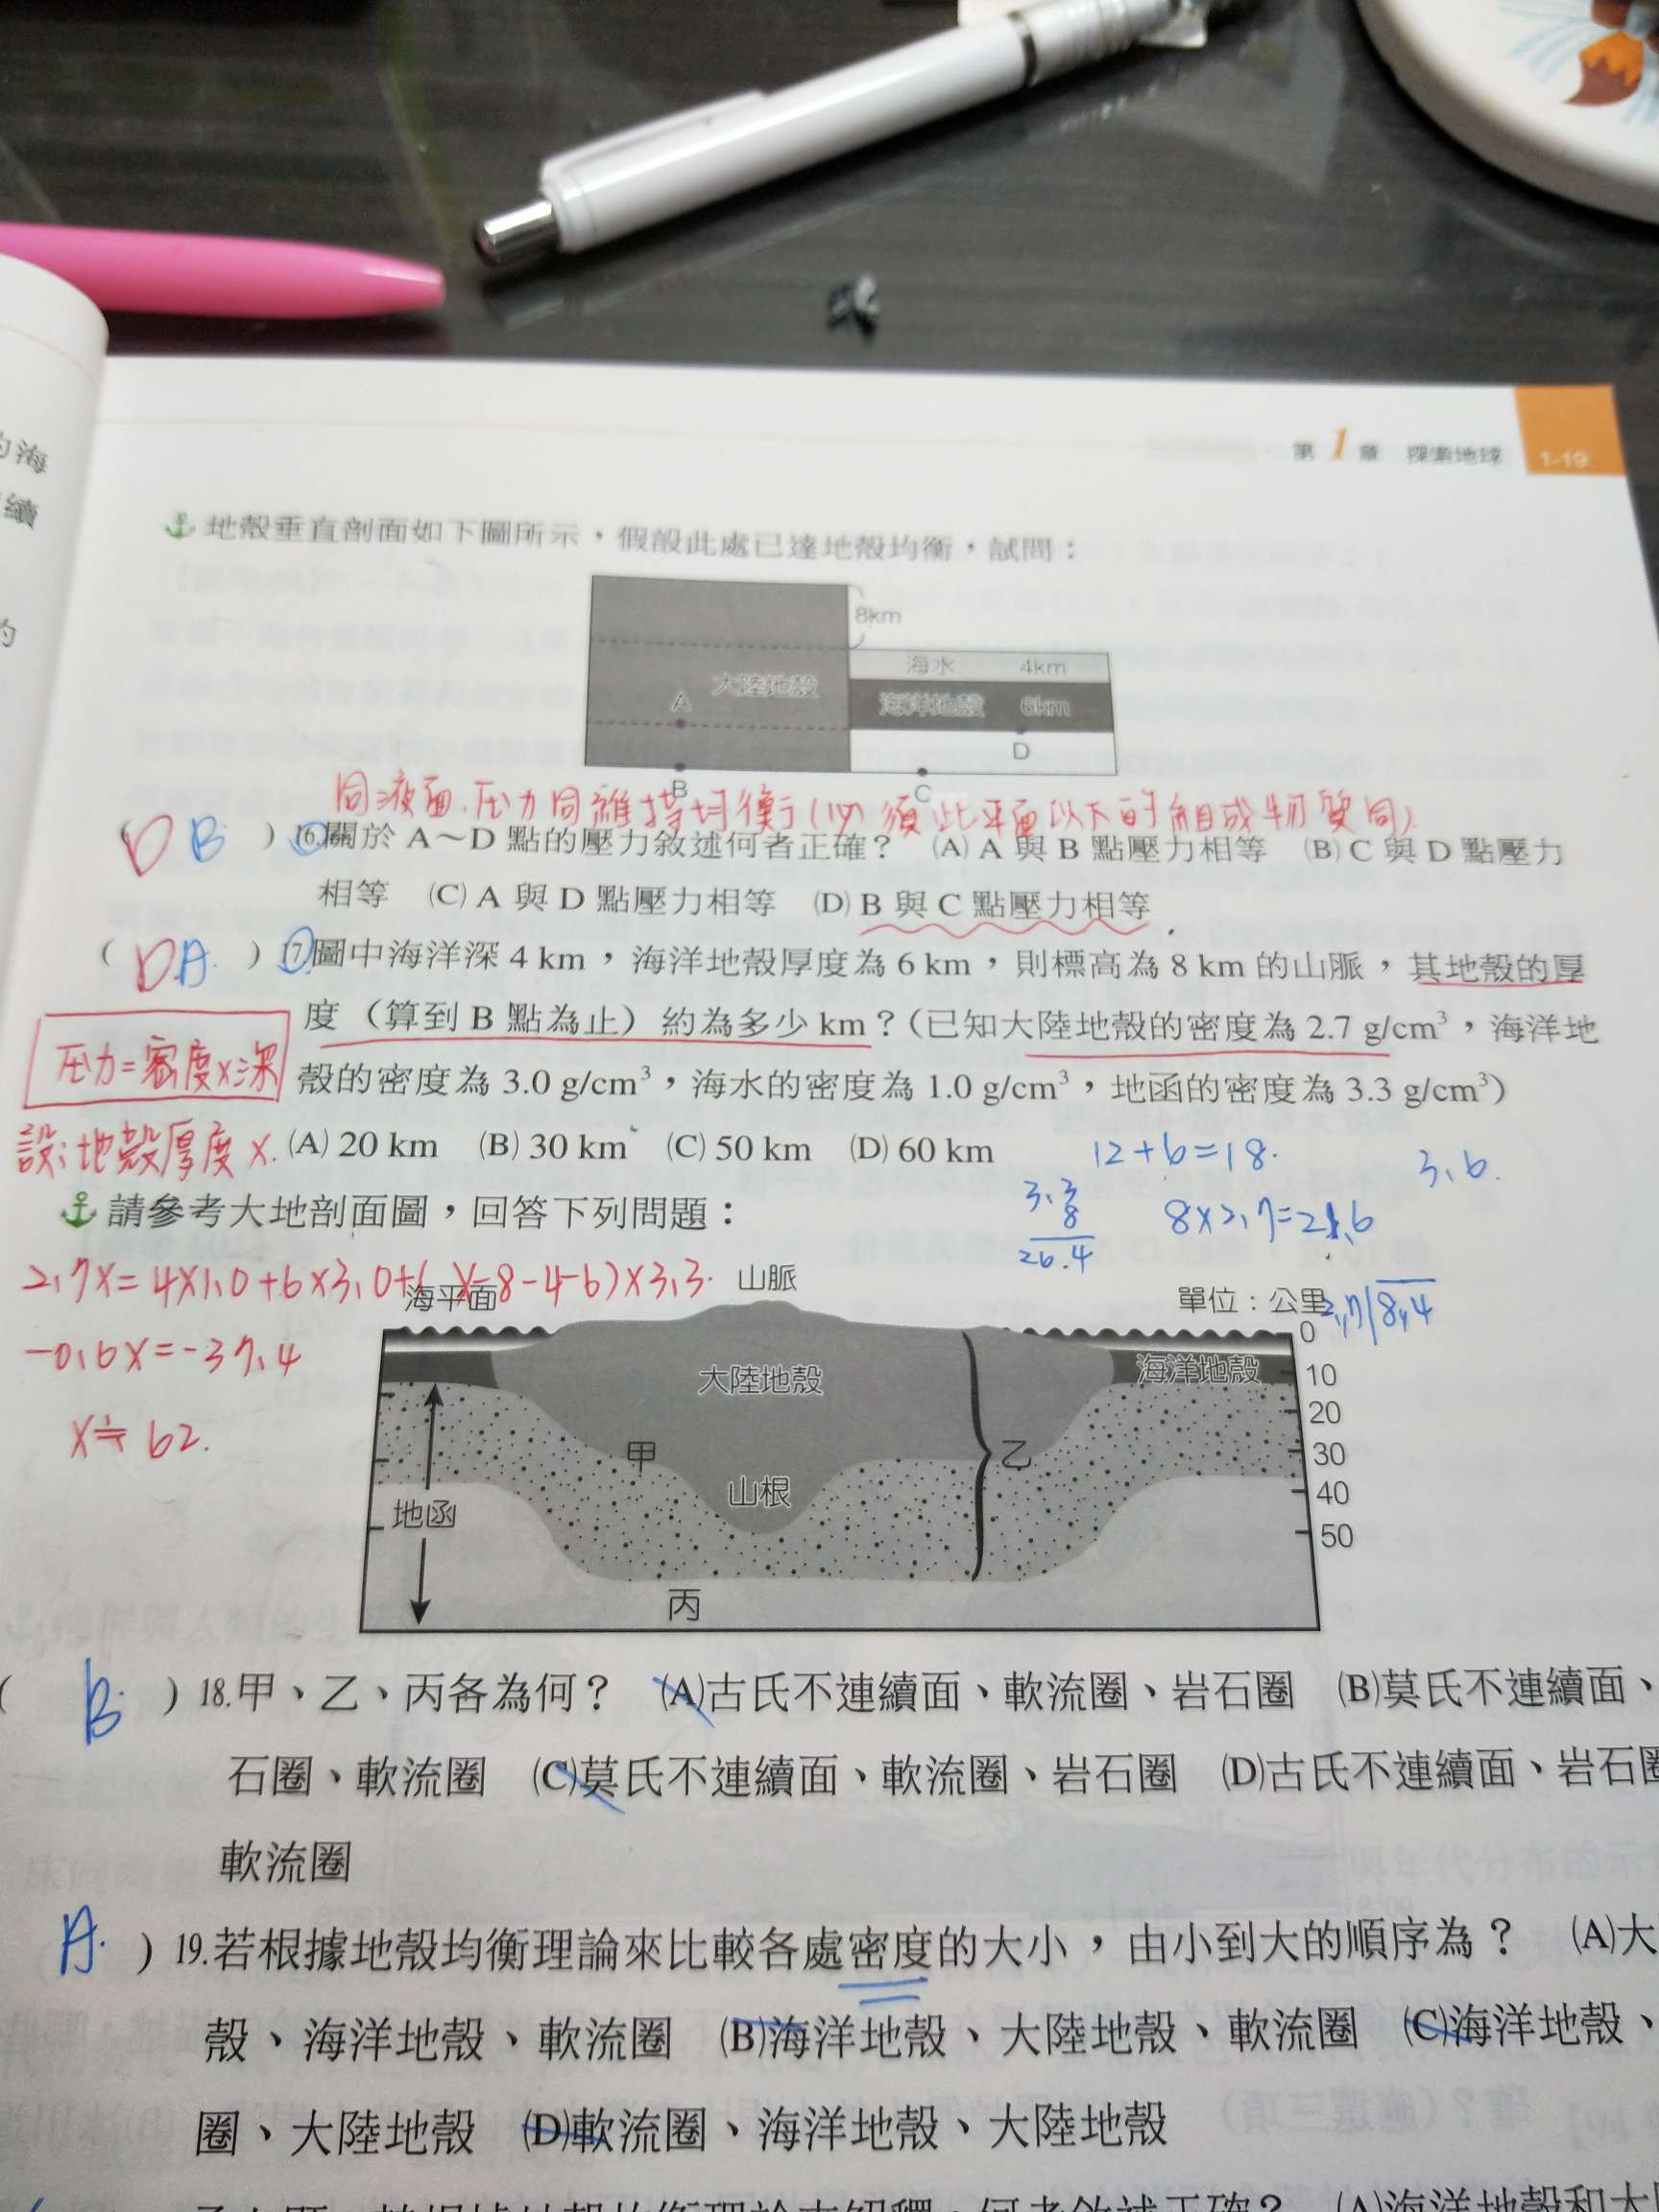 的海
續
的
第 1 章 探索地球 1-19
地殼垂直剖面如下圖所示，假設此處已達地殼均衡，試問：
8km
海水 4km
大陸地殼
A
海洋地殼 6km
D
B
C
同液面,压力同維持均衡(必須此平面以下的組成物質同)
( D B ) 16.關於 A～D 點的壓力敘述何者正確？ (A) A 與 B 點壓力相等 (B) C 與 D 點壓力
相等 (C) A 與 D 點壓力相等 (D) B 與 C 點壓力相等
( D A. ) 17.圖中海洋深 4 km，海洋地殼厚度為 6 km，則標高為 8 km 的山脈，其地殼的厚
度（算到 B 點為止）約為多少 km？（已知大陸地殼的密度為 2.7 g/cm³，海洋地
压力=密度×深
殼的密度為 3.0 g/cm³，海水的密度為 1.0 g/cm³，地函的密度為 3.3 g/cm³）
設:地殼厚度 x.
(A) 20 km (B) 30 km (C) 50 km (D) 60 km
12+6=18.
3.6.
3.3
8
26.4
8×2.7=21.6
請參考大地剖面圖，回答下列問題：
2.7x=4×1.0+6×3.0+(x-8-4-6)×3.3.
2.7 8.4
-0.6x=-37.4
x≒62.
山脈
海平面
單位：公里
0
大陸地殼
海洋地殼
10
20
甲
乙
30
山根
40
地函
50
丙
( B. ) 18.甲、乙、丙各為何？ (A)古氏不連續面、軟流圈、岩石圈 (B)莫氏不連續面、
石圈、軟流圈 (C)莫氏不連續面、軟流圈、岩石圈 (D)古氏不連續面、岩石圈
軟流圈
A. ) 19.若根據地殼均衡理論來比較各處密度的大小，由小到大的順序為？ (A)大
殼、海洋地殼、軟流圈 (B)海洋地殼、大陸地殼、軟流圈 (C)海洋地殼、
圈、大陸地殼 (D)軟流圈、海洋地殼、大陸地殼